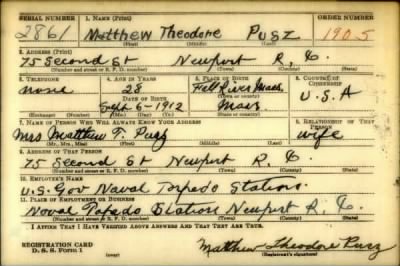 SERIAL NUMBER 1. NAME (Print) ORDER NUMBER
2861 Matthew Theodore Pugz 1905
(First) (Middle) (Last)
2. ADDRESS (Print)
75 Second St Newport R. I.
(Number and street or R. F. D. number) (Town) (County) (State)
3. TELEPHONE 4. AGE IN YEARS 5. PLACE OF BIRTH 6. COUNTRY OF CITIZENSHIP
none 28 Fall River Mass U.S.A
DATE OF BIRTH (Town or county)
Sept 6-1912 Mass
(Exchange) (Number) (Mo.) (Day) (Yr.) (State or country)
7. NAME OF PERSON WHO WILL ALWAYS KNOW YOUR ADDRESS 8. RELATIONSHIP OF THAT PERSON
Mrs Matthew T. Pugz wife
(Mr., Mrs., Miss) (First) (Middle) (Last)
9. ADDRESS OF THAT PERSON
75 Second St Newport R. I.
(Number and street or R. F. D. number) (Town) (County) (State)
10. EMPLOYER'S NAME
U.S. Gov Naval Torpedo Station
11. PLACE OF EMPLOYMENT OR BUSINESS
Naval Torpedo Station Newport R. I.
(Number and street or R. F. D. number) (Town) (County) (State)
I AFFIRM THAT I HAVE VERIFIED ABOVE ANSWERS AND THAT THEY ARE TRUE.
REGISTRATION CARD
D. S. S. Form 1
Matthew Theodore Pugz
(Registrant's signature)